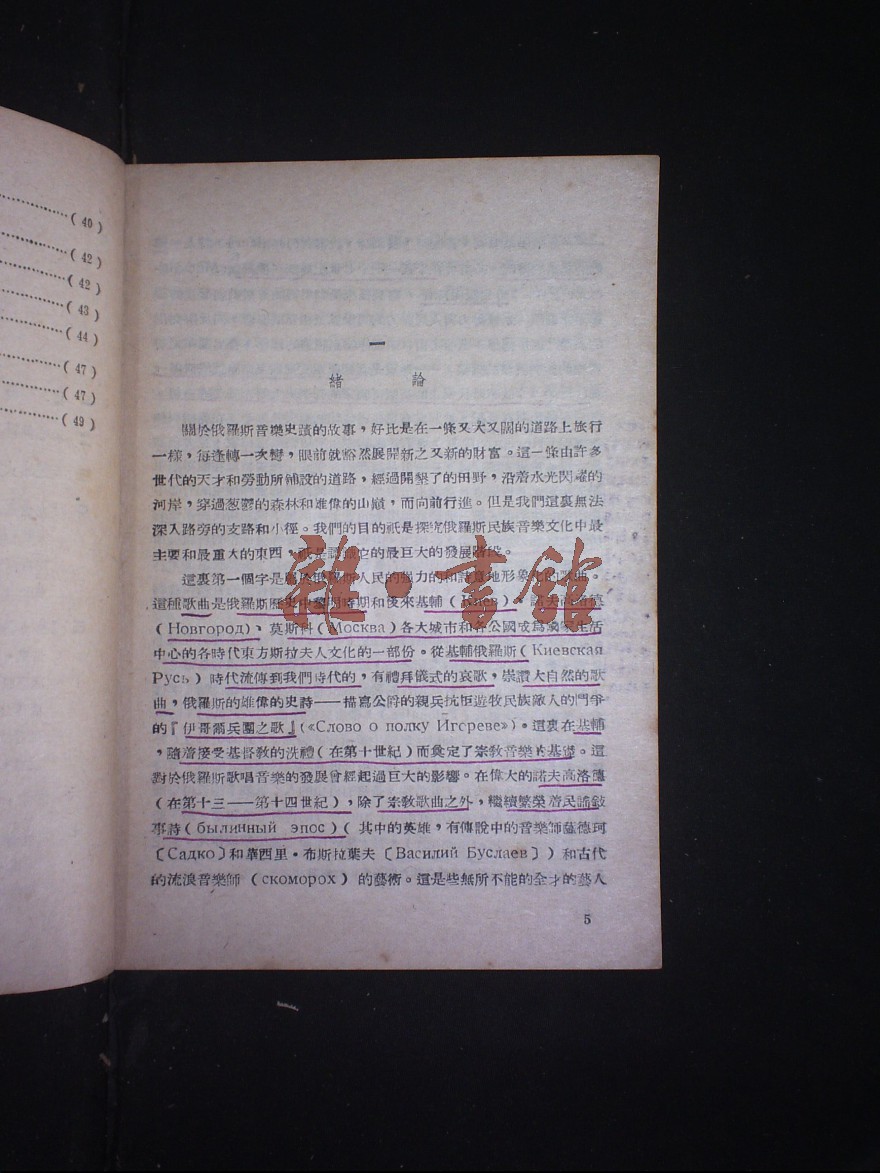 (40)
(42)
(42)
(43)
(44)
(47)
(47)
(49)
一
緒 論
關於俄羅斯音樂史蹟的故事，好比是在一條又大又闊的道路上旅行
一樣，每逢轉一次彎，眼前就豁然展開新之又新的財富。這一條由許多
世代的天才和勞動所鋪設的道路，經過開墾了的田野，沿着水光閃耀的
河岸，穿過葱鬱的森林和雄偉的山巔，而向前行進。但是我們這裏無法
深入路旁的支路和小徑。我們的目的祇是探究俄羅斯民族音樂文化中最
主要和最重大的東西，祇是認識它的最巨大的發展階段。
這裏第一個字是屬於俄羅斯人民的強力的和詩意地形象化的歌曲。
這種歌曲是俄羅斯歷史中黎明時期和後來基輔（Киев）、諾夫高洛德
（Новгород）、莫斯科（Москва）各大城市和各公國成爲國家生活
中心的各時代東方斯拉夫人文化的一部份。從基輔俄羅斯（Киевская
Русь）時代流傳到我們時代的，有禮拜儀式的哀歌，崇讚大自然的歌
曲，俄羅斯的雄偉的史詩——描寫公爵的親兵抗拒遊牧民族敵人的鬥爭
的『伊哥爾兵團之歌』(«Слово о полку Игореве»)。還裏在基輔
，隨着接受基督敎的洗禮（在第十世紀）而奠定了宗敎音樂的基礎。這
對於俄羅斯歌唱音樂的發展曾經起過巨大的影響。在偉大的諾夫高洛德
（在第十三——第十四世紀），除了宗敎歌曲之外，繼續繁榮着民謠敍
事詩（былинный эпос）（其中的英雄，有傳說中的音樂師薩德珂
〔Садко〕和華西里·布斯拉葉夫〔Василий Буслаев〕）和古代
的流浪音樂師（скоморох）的藝術。這是些無所不能的全才的藝人
5
雜·書館